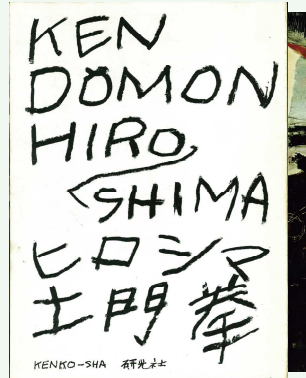 KEN
DOMON
HIRO
SHIMA
ヒロシマ
土門拳
KENKO-SHA 研光社